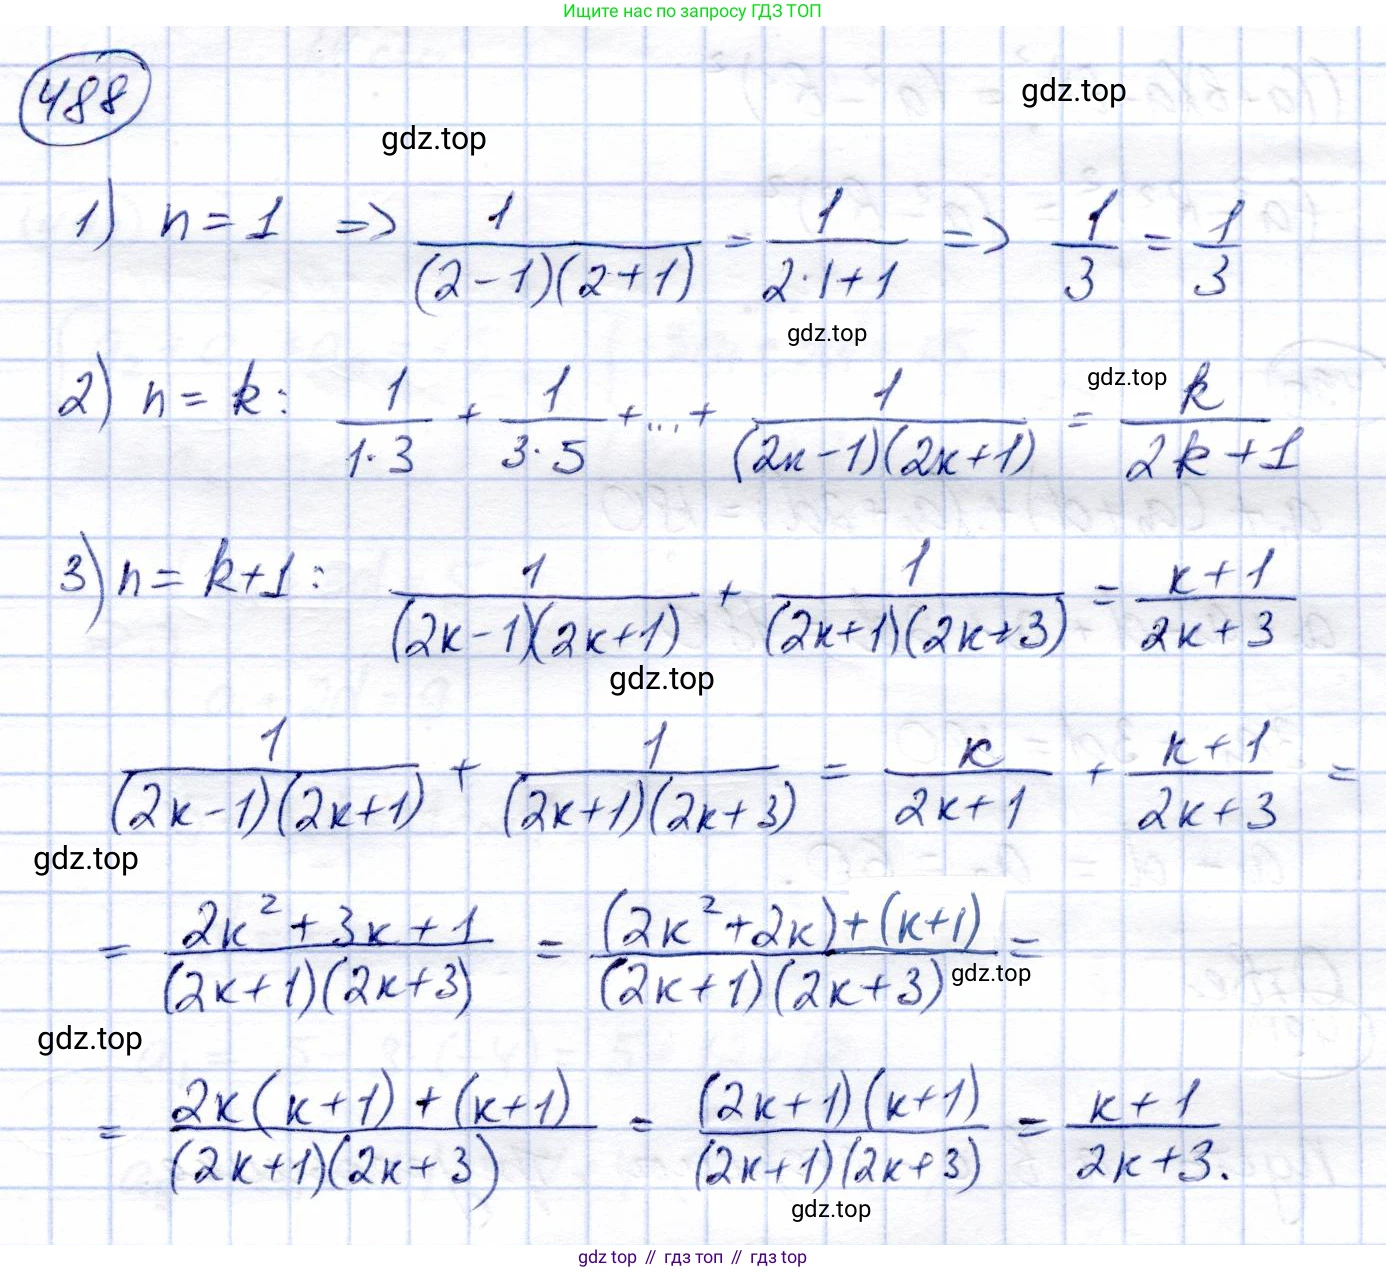 Ищите нас по запросу ГДЗ ТОП
488
gdz.top
gdz.top
1) n = 1 => 1/((2-1)(2+1)) = 1/(2·1+1) => 1/3 = 1/3
gdz.top
gdz.top
2) n = k: 1/(1·3) + 1/(3·5) + ... + 1/((2k-1)(2k+1)) = k/(2k+1)
3) n = k+1: 1/((2k-1)(2k+1)) + 1/((2k+1)(2k+3)) = (k+1)/(2k+3)
gdz.top
1/((2k-1)(2k+1)) + 1/((2k+1)(2k+3)) = k/(2k+1) + (k+1)/(2k+3) =
gdz.top
= (2k²+3k+1)/((2k+1)(2k+3)) = ((2k²+2k)+(k+1))/((2k+1)(2k+3)) =
gdz.top
gdz.top
= (2k(k+1)+(k+1))/((2k+1)(2k+3)) = ((2k+1)(k+1))/((2k+1)(2k+3)) = (k+1)/(2k+3).
gdz.top
gdz top // гдз топ // гдз top